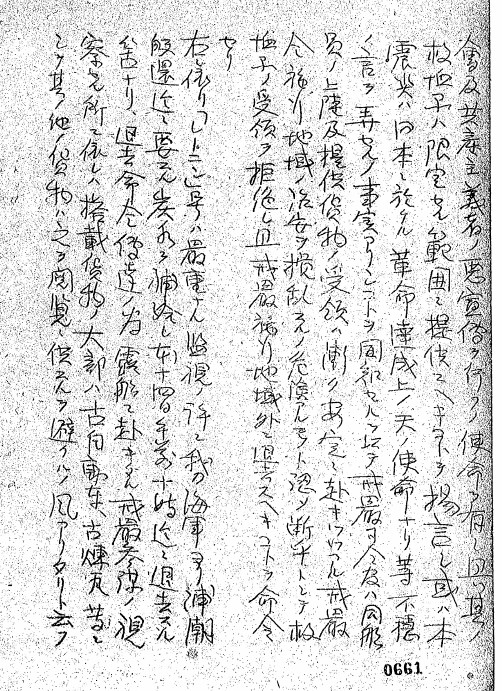 會及共産主義者ノ悪宣傳ヲ行フノ使命ヲ有シ且ツ其ノ
救恤品ハ限定セル範囲ニ提供スヘキコトヲ揚言シ或ハ本
震災ハ日本ニ於ケル革命達成上ノ天ノ使命ナリ等不穏
ノ言ヲ弄セルノ事実アリシコトヲ聞知セルヲ以テ戒厳司令官ハ同船
員ノ上陸及提供貨物ノ受領ハ漸ク安定ニ赴キツツアル戒厳
令施行地域ノ治安ヲ攪乱スルノ危険アルモノト認メ断乎トシテ救
恤品ノ受領ヲ拒絶シ且戒厳施行地域外ニ退去スヘキコトヲ命令
セリ
右ニ依リ「レーニン」号ハ厳重ナル監視ノ許ニ我カ海軍ヨリ浦潮
帰還迄ニ要スル炭水ヲ補給シ本十四日午前十時迄ニ退去スル
筈ナリ、退去命令傳達ノ為震船ニ赴キタル戒厳参謀ノ視
察セル所ニ依レハ搭載貨物ノ大部ハ古自動車、古煉瓦等ニ
シテ其ノ他ノ貨物ハ之ヲ閲覧ニ供スルヲ避クルノ風アリタリト云フ
0661